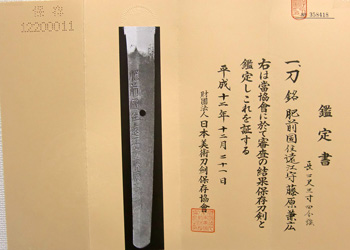 鑑定書
一、刀 銘 肥前国住遠江守藤原兼広
長さ
右は当協會に於て審査の結果保存刀剣と
鑑定しこれを証する
平成十二年十二月二十一日
財團法人 日本美術刀剣保存協會
保存
12200011